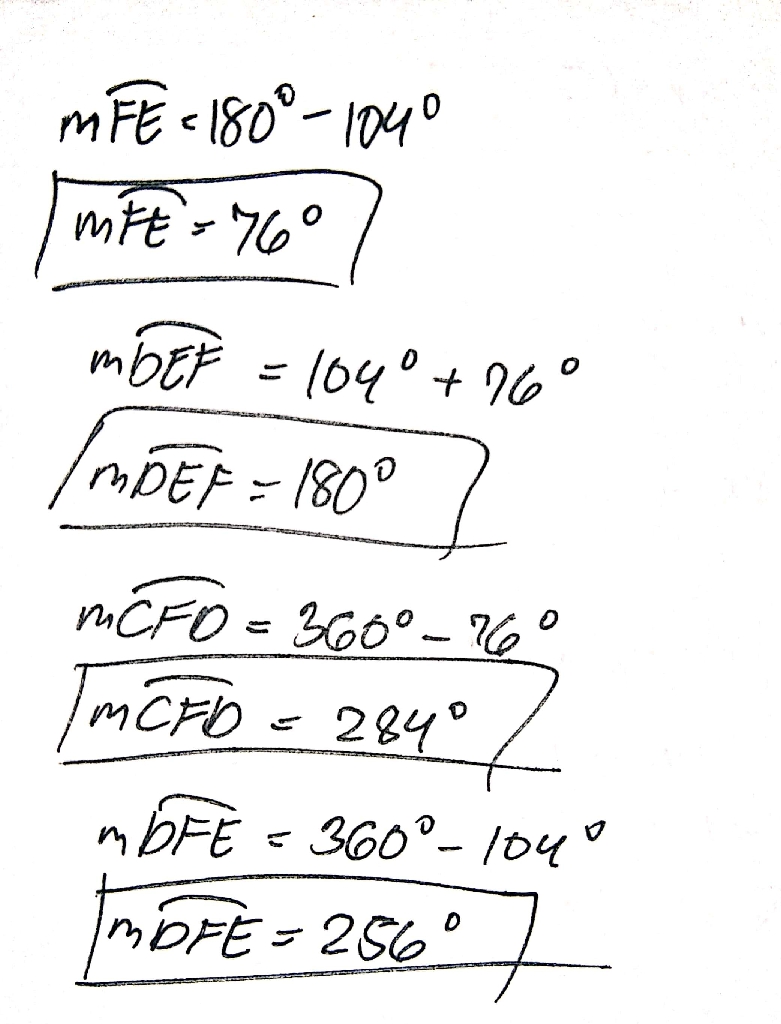 m FE = 180° - 104°
m FE = 76°
m DEF = 104° + 76°
m DEF = 180°
m CFD = 360° - 76°
m CFD = 284°
m DFE = 360° - 104°
m DFE = 256°